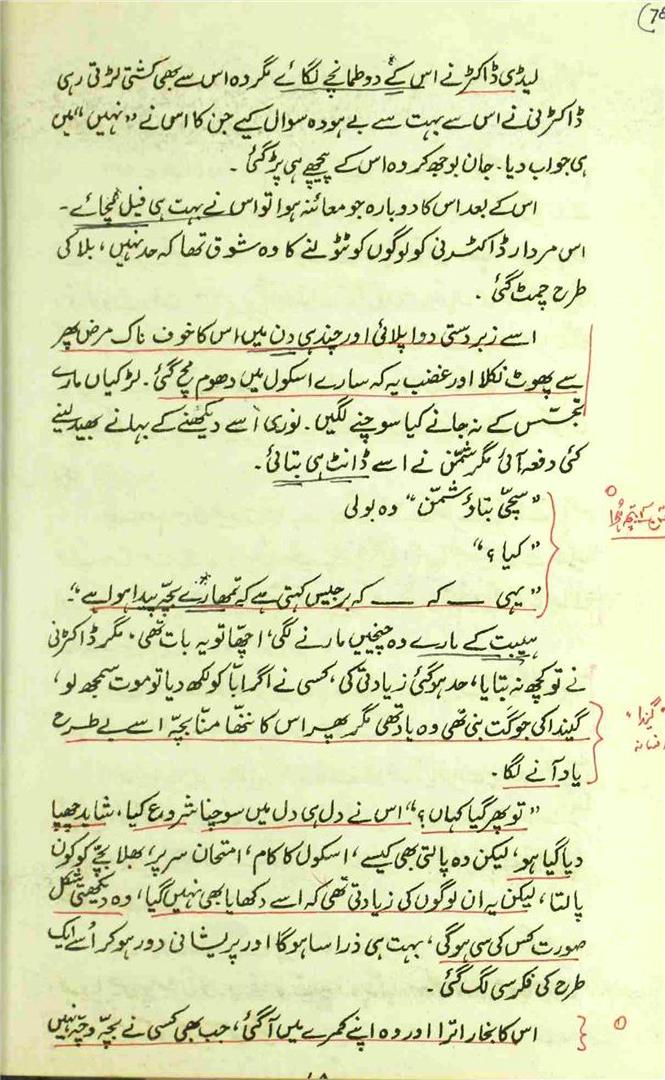 (78
لیڈی ڈاکٹر نے اس کے دو طمانچے لگائے مگر وہ اس سے بھی کشتی لڑتی رہی
ڈاکٹرنی نے اس سے بہت سے بے ہودہ سوال کیے جن کا اس نے "نہیں" میں
ہی جواب دیا۔ جان بوجھ کر وہ اس کے پیچھے ہی پڑ گئی۔
اس کے بعد اس کا دوبارہ جو معائنہ ہوا تو اس نے بہت ہی فیل مچائے۔
اس مردار ڈاکٹرنی کو لوگوں کو ٹٹولنے کا وہ شوق تھا کہ حد نہیں، بلا کی
طرح چمٹ گئی۔
اسے زبردستی دوا پلائی اور چند ہی دن میں اس کا خوف ناک مرض پھر
سے پھوٹ نکلا اور غضب یہ کہ سارے اسکول میں دھوم مچ گئی۔ لڑکیاں مارے
تجسّس کے نہ جانے کیا سوچنے لگیں۔ نوری اُسے دیکھنے کے بہانے بھید لینے
کئی دفعہ آئی مگر شمّن نے اسے ڈانٹ ہی بتائی۔
"سچّی بتاؤ شمّن" وہ بولی
"کیا؟"
"یہی ـــــ کہ ـــــ کہ برجیس کہتی ہے کہ تمھارے بچّہ پیدا ہوا ہے"۔
ہیبت کے مارے وہ چیخیں مارنے لگی، اچھا تو یہ بات تھی۔ مگر ڈاکٹرنی
نے تو کچھ نہ بتایا، حد ہو گئی زیادتی کی، کسی نے اگر ابّا کو لکھ دیا تو موت سمجھ لو،
گیندا کی جو گت بنی تھی وہ یاد تھی مگر پھر اس کا ننھّا منّا بچّہ اسے بے طرح
یاد آنے لگا۔
"تو پھر گیا کہاں؟" اس نے دل ہی دل میں سوچنا شروع کیا، شاید چھپا
دیا گیا ہو، لیکن وہ پالتی بھی کیسے، اسکول کا کام، امتحان سر پر، بھلا بچّے کو کون
پالتا، لیکن یہ ان لوگوں کی زیادتی تھی کہ اسے دکھایا بھی نہیں گیا، وہ دیکھتی شکل
صورت کس کی سی ہوگی، بہت ہی ذرا سا ہوگا اور پریشانی دور ہو کر اُسے ایک
طرح کی فکر سی لگ گئی۔
اس کا بخار اترا اور وہ اپنے کمرے میں آگئی، جب بھی کسی نے بچّہ وچّہ نہیں